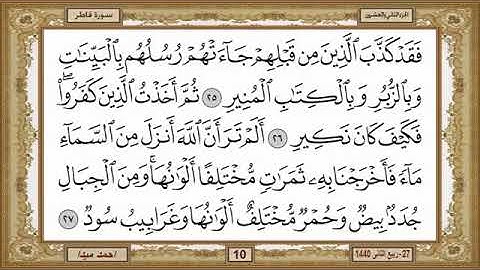 سورة فاطر
الجزء الثاني والعشرون
فَقَدْ كَذَّبَ ٱلَّذِينَ مِن قَبْلِهِمْ جَآءَتْهُمْ رُسُلُهُم بِٱلْبَيِّنَـٰتِ
وَبِٱلزُّبُرِ وَبِٱلْكِتَـٰبِ ٱلْمُنِيرِ ٢٥ ثُمَّ أَخَذْتُ ٱلَّذِينَ كَفَرُوا۟ ۖ
فَكَيْفَ كَانَ نَكِيرِ ٢٦ أَلَمْ تَرَ أَنَّ ٱللَّهَ أَنزَلَ مِنَ ٱلسَّمَآءِ
مَآءً فَأَخْرَجْنَا بِهِۦ ثَمَرَٰتٍ مُّخْتَلِفًا أَلْوَٰنُهَا ۚ وَمِنَ ٱلْجِبَالِ
جُدَدٌۢ بِيضٌ وَحُمْرٌ مُّخْتَلِفٌ أَلْوَٰنُهَا وَغَرَابِيبُ سُودٌ ٢٧
27 - ربيع الثاني 1440
10